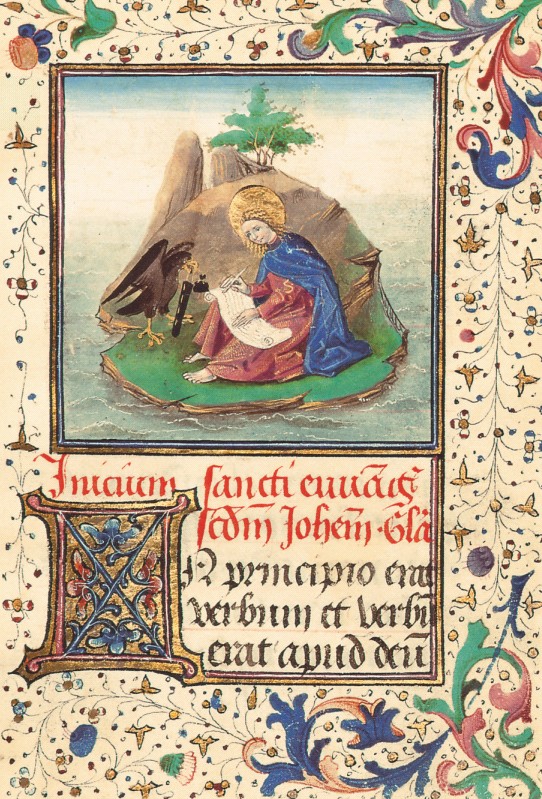 Inicium sancti euuãg̃
scd̃m Johem̃. Glã
IN principio erat
verbum et verbũ
erat apud deũ